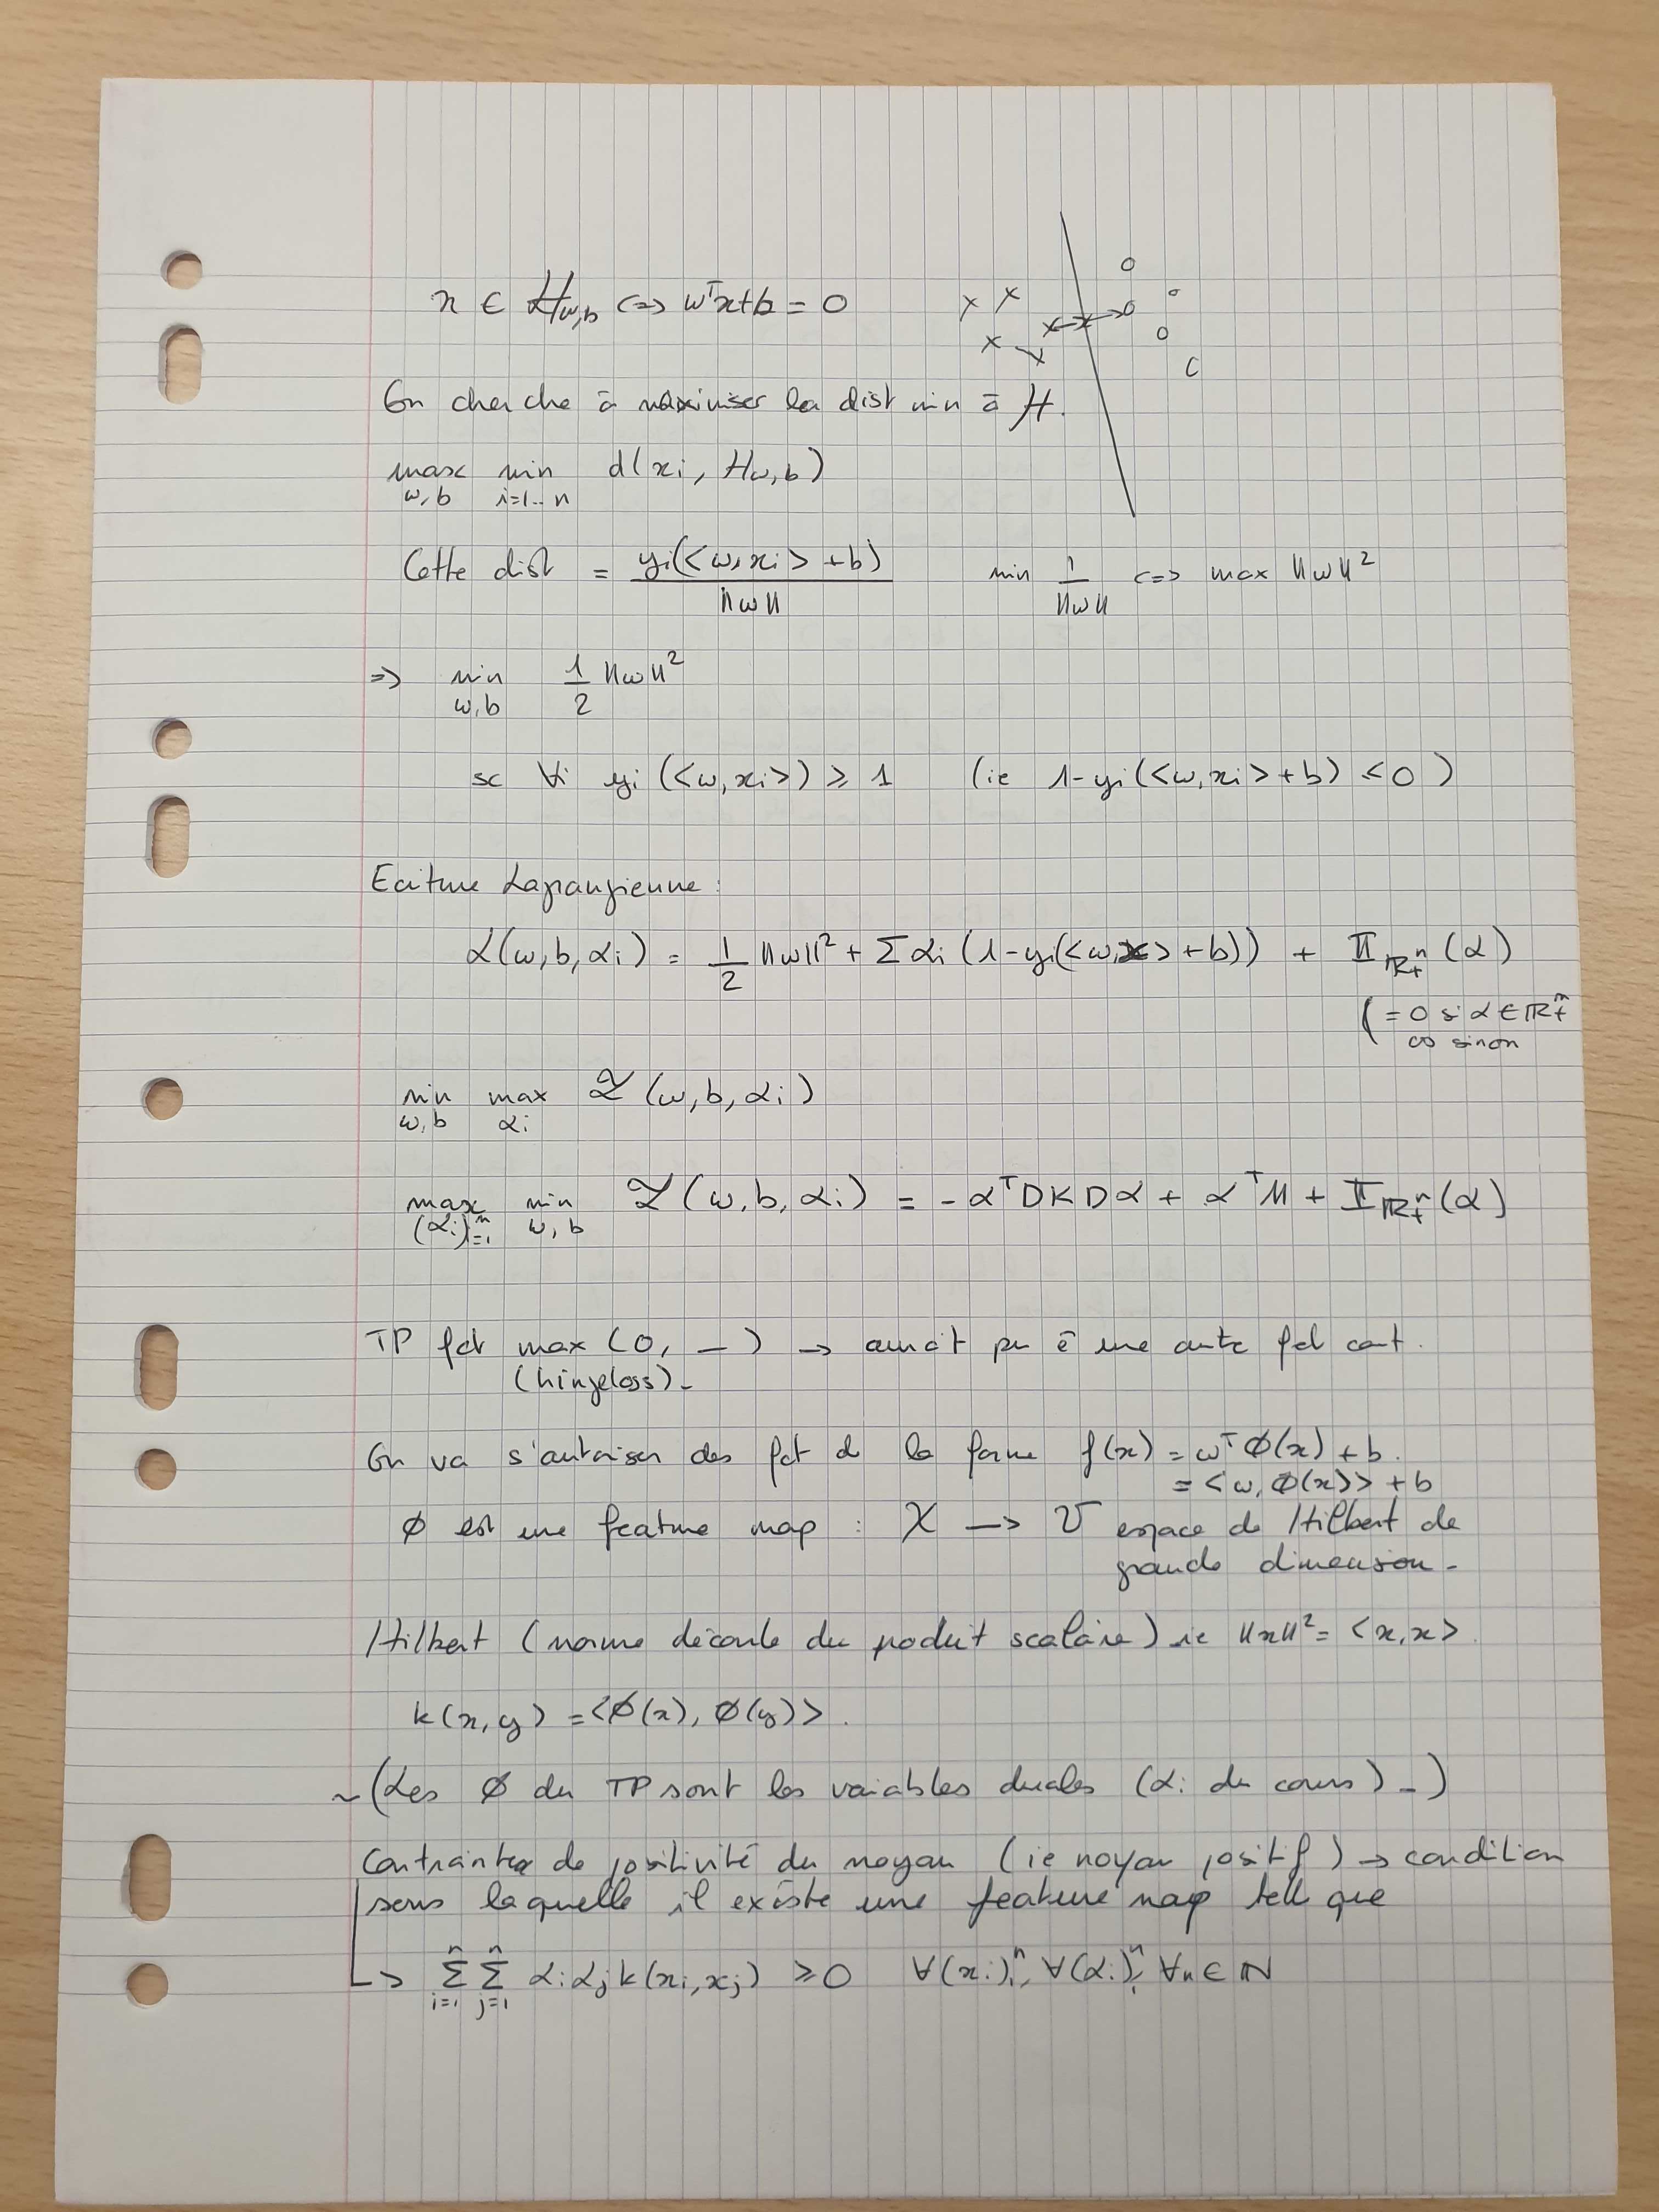 x ∈ H_{w,b} <=> w^T x + b = 0
On cherche à maximiser la dist min à H.
max_{w,b} min_{i=1..n} d(x_i, H_{w,b})
Cette dist = y_i(<w,x_i> + b) / ||w||    min 1/||w|| <=> max ||w||²
=> min_{w,b} 1/2 ||w||²
sc ∀i y_i(<w,x_i>) ≥ 1 (ie 1-y_i(<w,x_i> + b) ≤ 0)
Ecriture Lagrangienne :
L(w,b,α_i) = 1/2 ||w||² + Σ α_i (1-y_i(<w,x> + b)) + 𝕀_{ℝ_+^n}(α)
( = 0 si α ∈ ℝ_+^n
∞ sinon
min_{w,b} max_{α_i} L̃(w,b,α_i)
max_{(α_i)_{i=1}^n} min_{w,b} L̃(w,b,α_i) = -α^T D K D α + α^T 𝟙 + 𝕀_{ℝ_+^n}(α)
TP fct max (0, —) → aurait pu ê une autre fct cont.
(hingeloss).
On va s'autoriser des fct de la forme f(x) = w^T ∅(x) + b.
= <w, ∅(x)> + b
∅ est une feature map : X → V espace de Hilbert de
grande dimension.
Hilbert (norme découle du produit scalaire) ie ||x||² = <x,x>.
k(x,y) = <∅(x), ∅(y)>.
~ (Les ∅ du TP sont les variables duales (α_i du cours).)
Contrainte de positivité du noyau (ie noyau positif) → condition
sous laquelle il existe une feature map tell que
↳ Σ_{i=1}^n Σ_{j=1}^n α_i α_j k(x_i,x_j) ≥ 0 ∀(x_i)_i^n, ∀(α_i)_i^n, ∀n ∈ ℕ